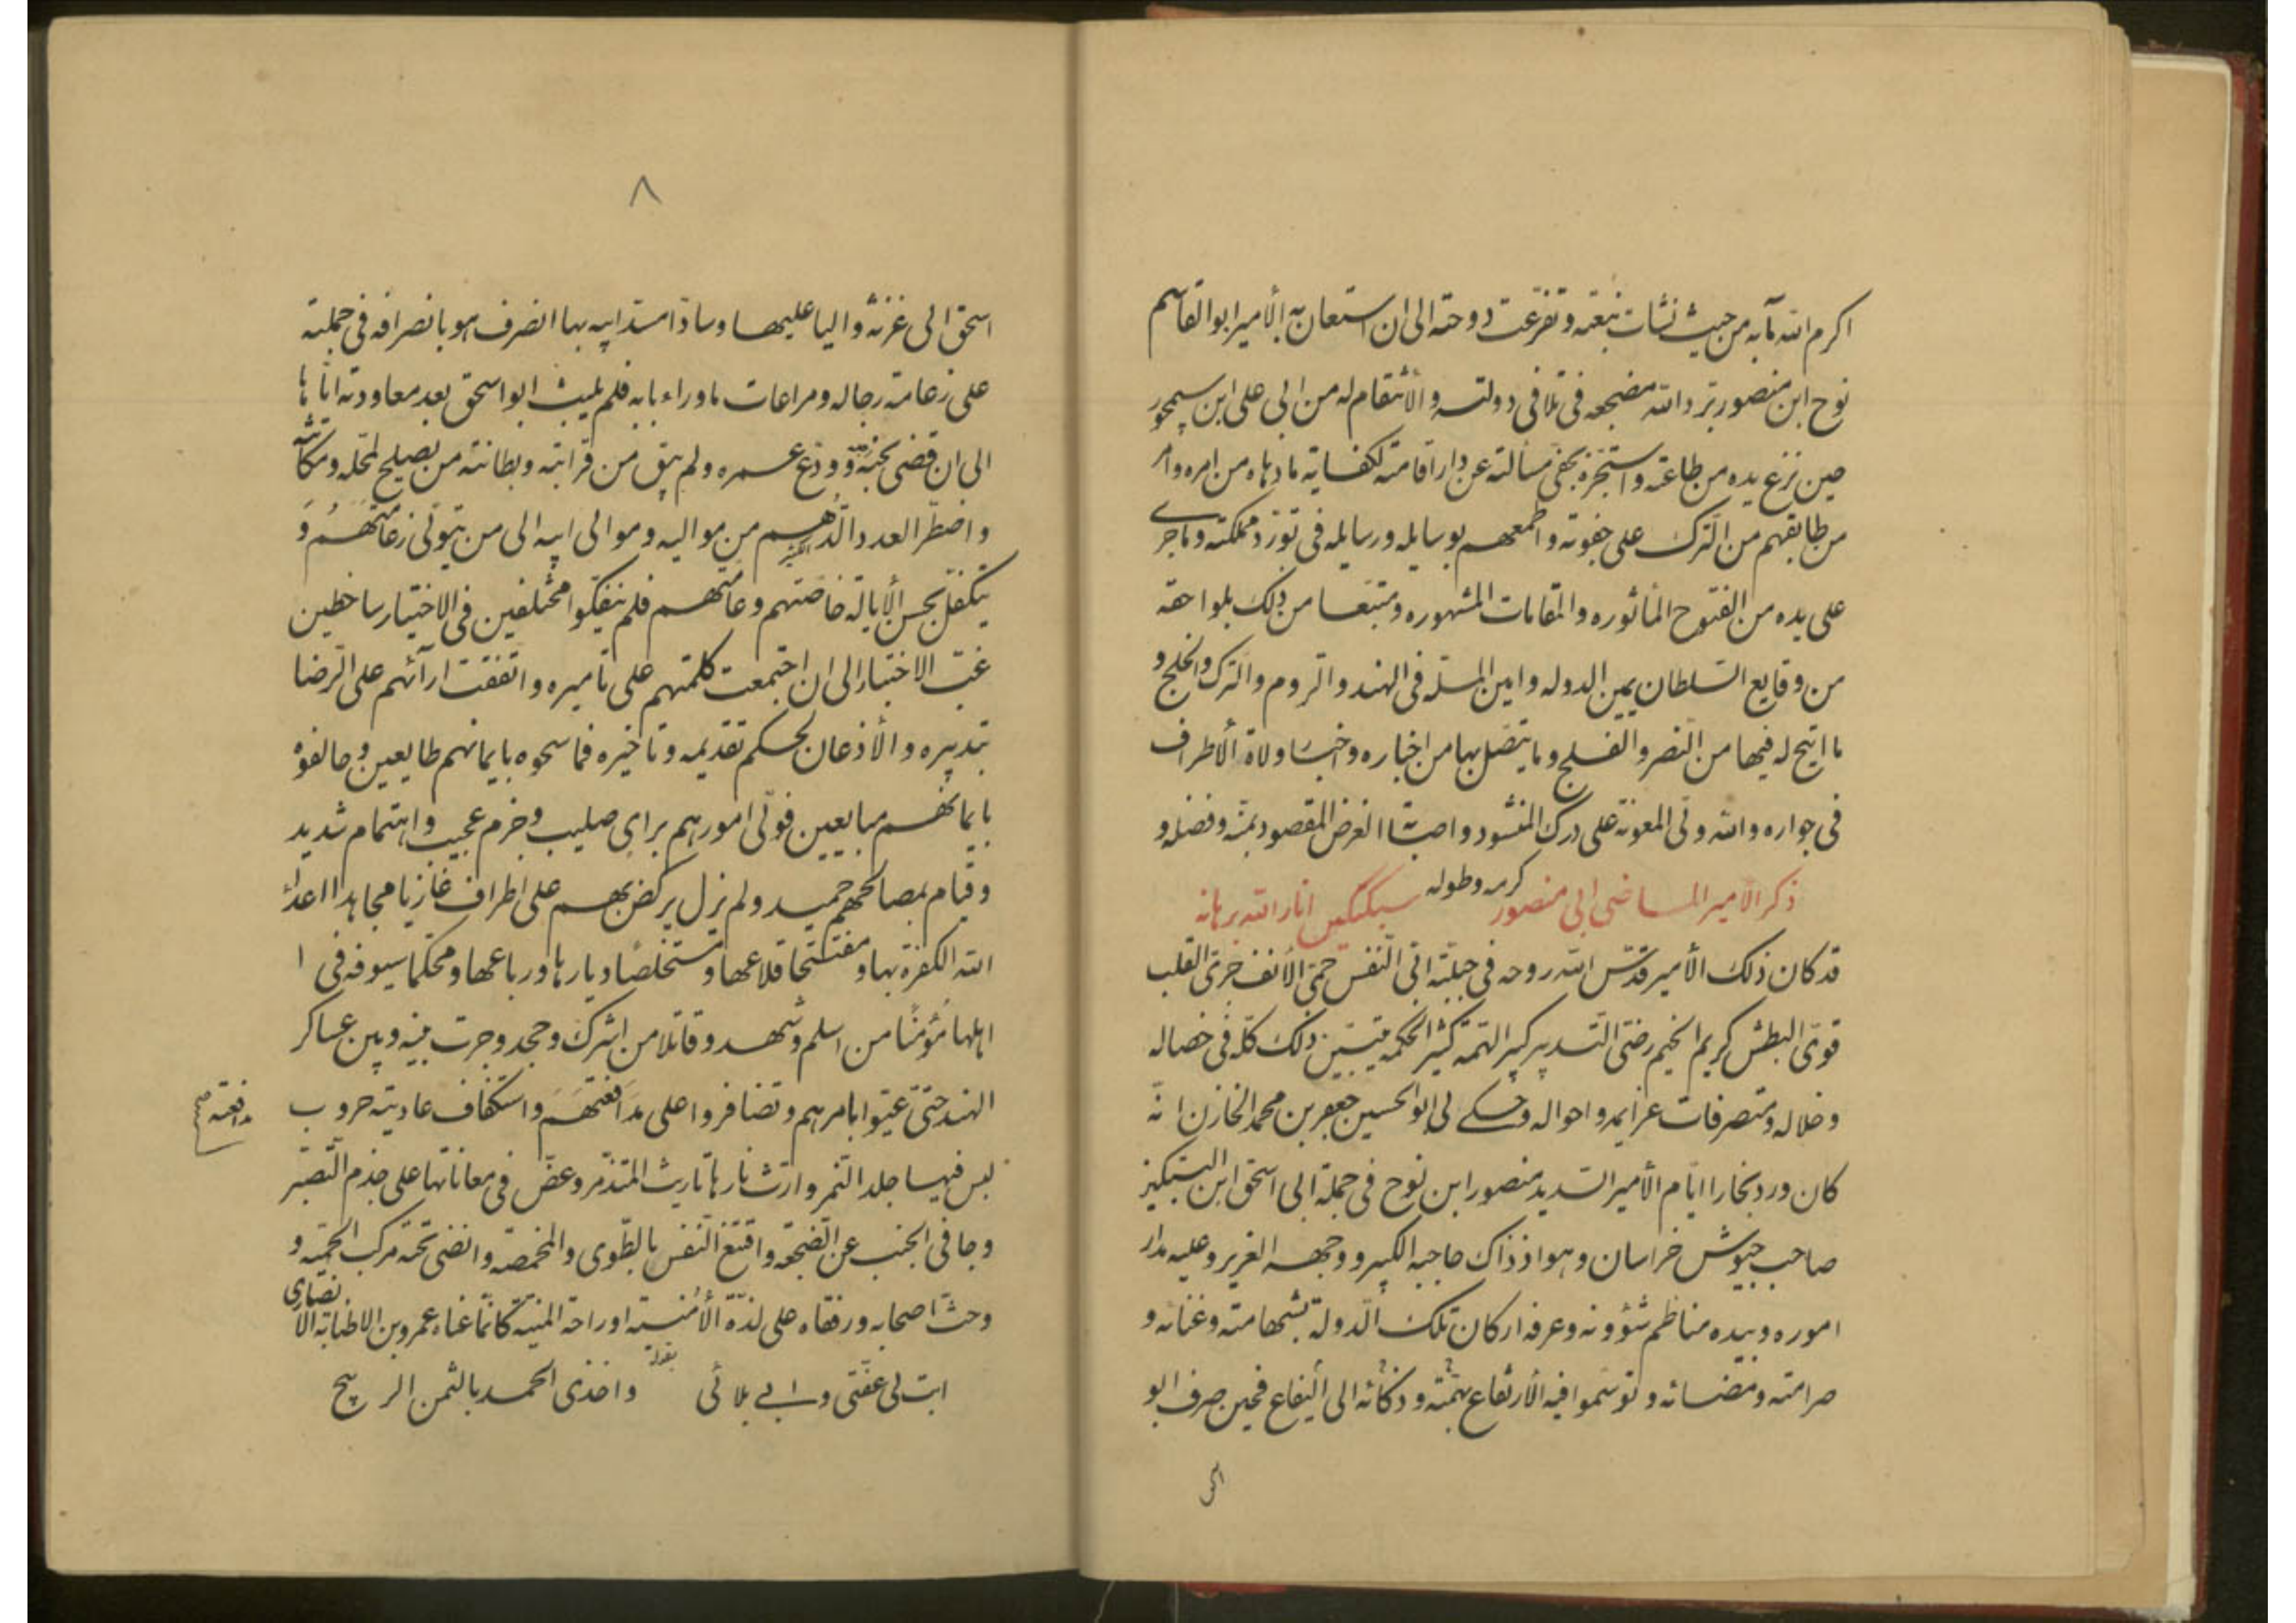 اكرم الله مآبه من حيث نشات نبعته وتفرعت دوحته الى ان استعان به الأمير ابو القاسم
نوح ابن منصور برد الله مضجعه فى تلافى دولته والأنتقام له من ابى على ابن سيمجور
حين نزع يده من طاعته واستجزه بحفى مسألته عن دار اقامته لكفاية ما دهاه من امره وامر
من طابقهم من الترك على جفوته واطمعهم بوسايله ورسايله فى تورد مملكته وما جرى
على يده من الفتوح المأثوره والمقامات المشهوره ومتبعا من ذلك بلواحقه
من وقايع السلطان يمين الدوله وامين المله فى الهند والروم والترك والخلج و
ما اتيح له فيها من النصر والفلج وما يتصل بها من اخباره واخبار ولاة الأطراف
فى جواره والله ولى المعونة على درك المنشود واصابة الغرض المقصود بمنه وفضله و
كرمه وطوله
ذكر الأمير الماضى ابى منصور سبكتكين انار الله برهانه
قد كان ذلك الأمير قدس الله روحه فى جبلته ابى النفس حمى الأنف جرى القلب
قوى البطش كريم الخيم رضى التدبير كبير الهمه كثير الحكمه يتبين ذلك كله فى خصاله
وخلاله ومتصرفات عزايمه واحواله وحكى لى ابو الحسين جعفر بن محمد الخازن انه
كان ورد بخارا ايام الأمير السديد منصور ابن نوح فى جملة ابى اسحق ابن البتكين
صاحب جيوش خراسان وهو اذ ذاك حاجبه الكبير ووجهه الغرير وعليه مدار
اموره وبيده مناظم شؤونه وعرفه اركان تلك الدولة بشهامته وغنائه و
صرامته ومضائه وتوسموا فيه الأرتفاع بهمته وذكائه الى اليفاع فحين صرف ابو
اسحق
٨
اسحق الى غزنه واليا عليها وسادا مسد ابيه بها انصرف هو بانصرافه فى جملته
على زعامة رجاله ومراعات ما وراء بابه فلم يلبث ابو اسحق بعد معاودته اياها
الى ان قضى نحبه وودع عمره ولم يبق من قرابته وبطانته من يصلح لمحله ومكانته
واضطر العدد الدهم من مواليه وموالى ابيه الى من يتولى زعامتهم و
يتكفل بحسن الأيالة خاصتهم وعامتهم فلم ينفكوا مختلفين فى الاختيار ساخطين
غب الاختبار الى ان اجتمعت كلمتهم على تاميره واتفقت ارآئهم على الرضا
بتدبيره والأذعان لحكم تقديمه وتاخيره فماسحوه بايمانهم طايعين وحالفوه
بايمانهم مبايعين فولى امورهم براى صليب وحزم عجيب واهتمام شديد
وقيام بمصالحهم حميد ولم يزل يركض بهم على اطراف غازيا مجاهدا اعداء
الله الكفرة بها ومفتتحا قلاعها ومستخلصا ديارها ورباعها ومحكما سيوفه فى ا
اهلها مؤمنا من اسلم وشهد وقاتلا من اشرك وجحد وجرت بينه وبين عساكر
الهند حتى عيوا بامرهم وتضافروا على مدافعتهم واستكفاف عاديته حروب
مدافعته صح
لبس فيها جلد النمر وارث نارها تاريث المتذمر وعض فى معاناتها على جذم التصبر
وجافى الجنب عن الضجعه واقنع النفس بالطوى والمخمصه وانضى تحته مركب الحميه و
وحث اصحابه ورفقاه على لذة الأمنية او راحة المنية كانما عناه عمرو بن الاطنابه الانصارى
بقوله
ابت لى عفتى وابى بلائى واخذى الحمد بالثمن الربيح